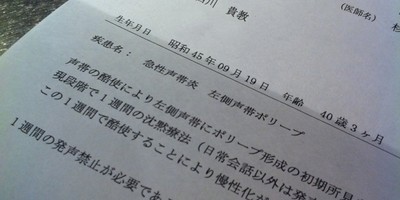 川 貴教
(医師名)
生年月日 昭和45年09月19日 年齢 40歳3ヶ月
疾患名: 急性声帯炎 左側声帯ポリープ
声帯の酷使により左側声帯にポリープ形成の初期所見
現段階で1週間の沈黙療法(日常会話以外は発声
この1週間で酷使することにより慢性化が
1週間の発声禁止が必要であ